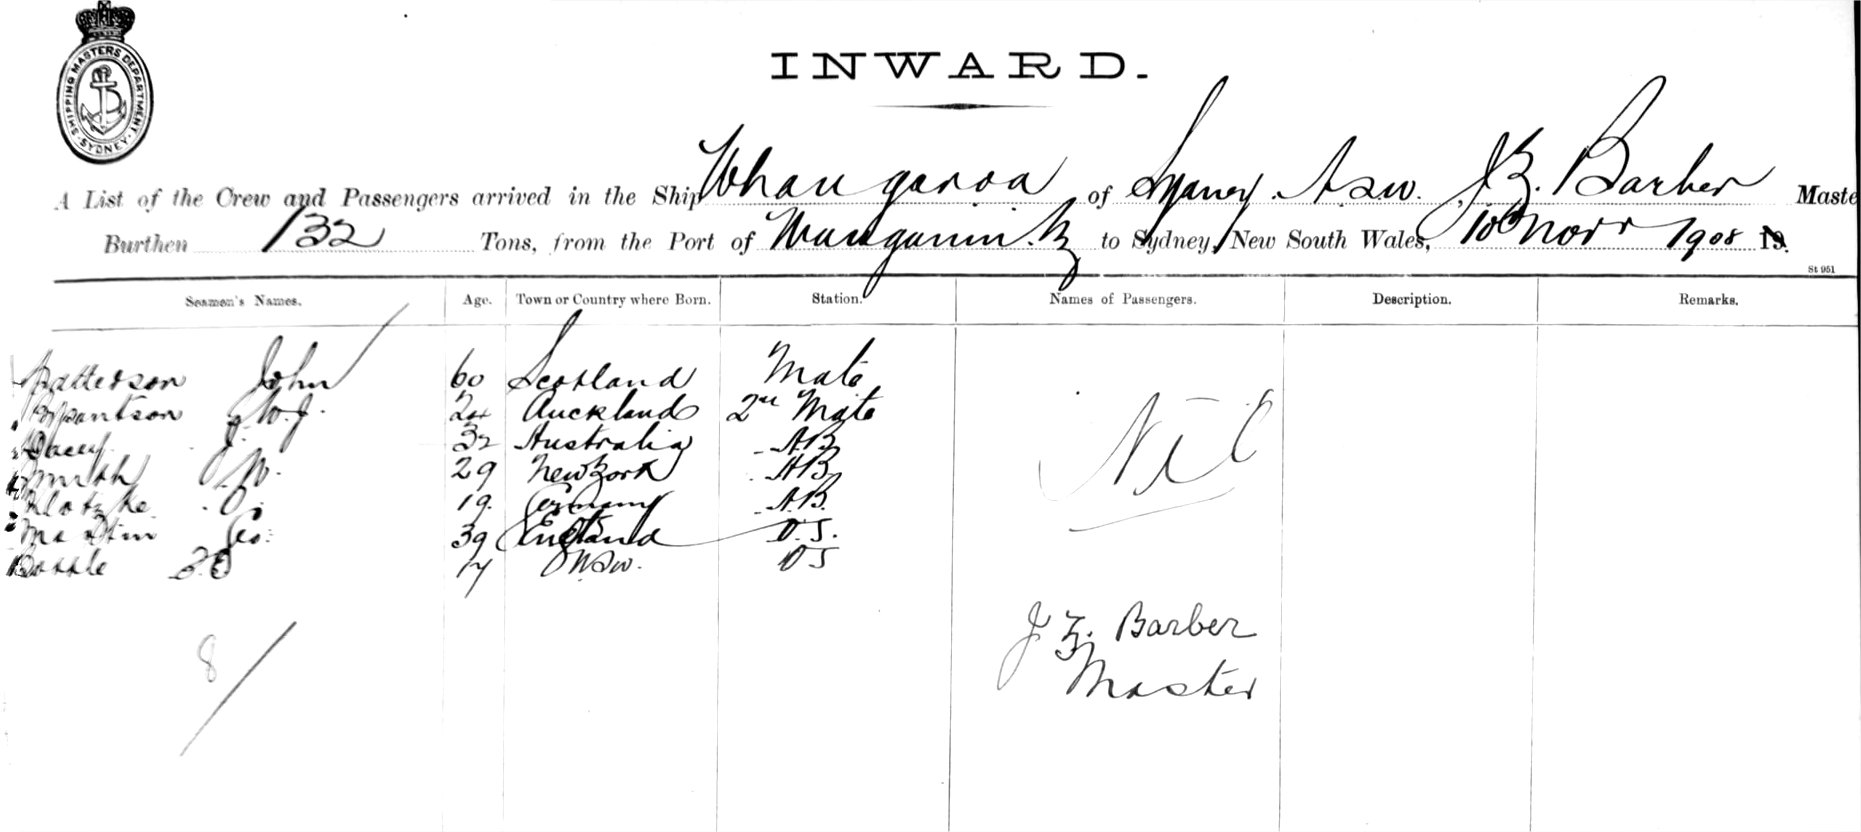 SHIPPING MASTERS DEPARTMENT
SYDNEY
INWARD.
A List of the Crew and Passengers arrived in the Ship Whangaroa of Sydney N.S.W. Barber Maste
Burthen 132 Tons, from the Port of to Sydney, New South Wales, 10th Novr 1908 19
St 951
Seamen's Names. Age. Town or Country where Born. Station. Names of Passengers. Description. Remarks.
Patterson John 60 Scotland Mate
W.J. 24 Auckland 2nd Mate
Dacey J. 32 Australia AB
Smith W. 29 New York AB
Klotzke O. 19 Germany A.B.
Martin Geo. 39 England O.S.
17 N.S.W. OS
Nil
J Barber
Master
8